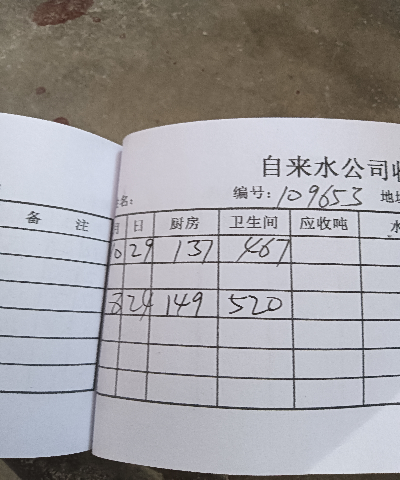 备 注
自来水公司收
名:
编号: 109653 地址
月 日 厨房 卫生间 应收吨 水
10 29 137 467
8 24 149 520